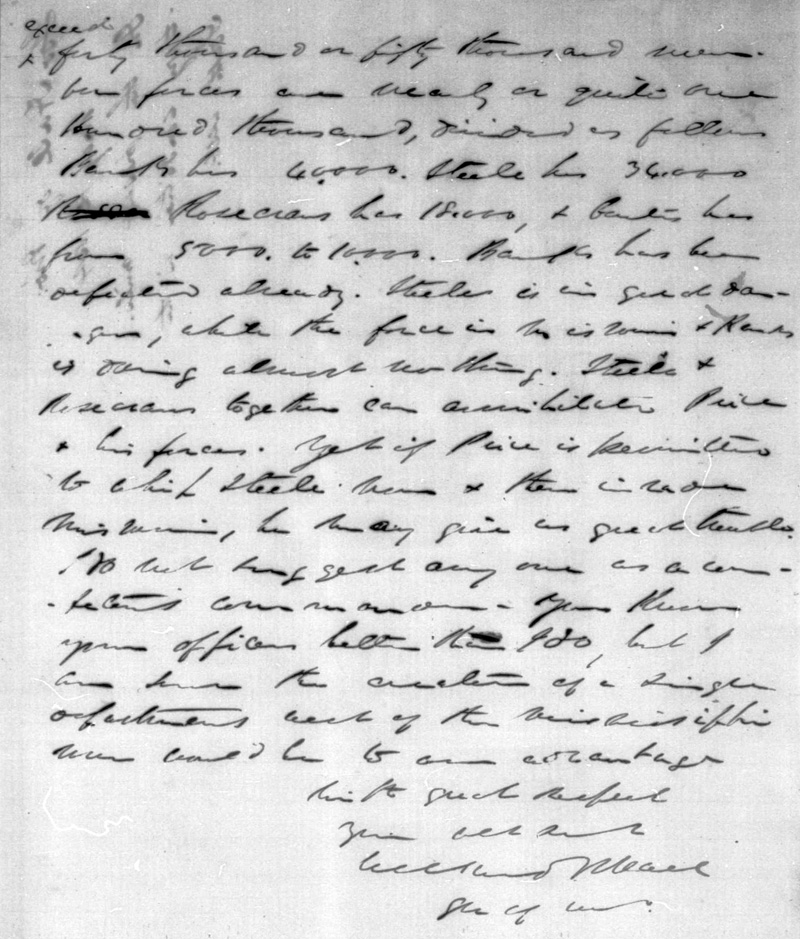 exceed
forty thousand or fifty thousand men.
Our forces are nearly or quite one
hundred thousand, divided as follows
Banks has 40.000. Steele has 34.000
Rosecrans has 18.000, & Curtis has
from 5000. to 10.000. Banks has been
defeated already. Steele is in great dan-
-ger, while the force in Missouri & Kansas
is doing almost nothing. Steele &
Rosecrans together can annihilate Price
& his forces. Yet if Price is permitted
to whip Steele now & then invade
Missouri, he may give us great trouble.
I do not suggest any one as a com-
-petent commander - You know
your officers better than I do, but I
am sure the creation of a single
department west of the Mississippi
now would be to our advantage
With great respect
Your obt servt
Willard P. Hall
Gov of Mo.